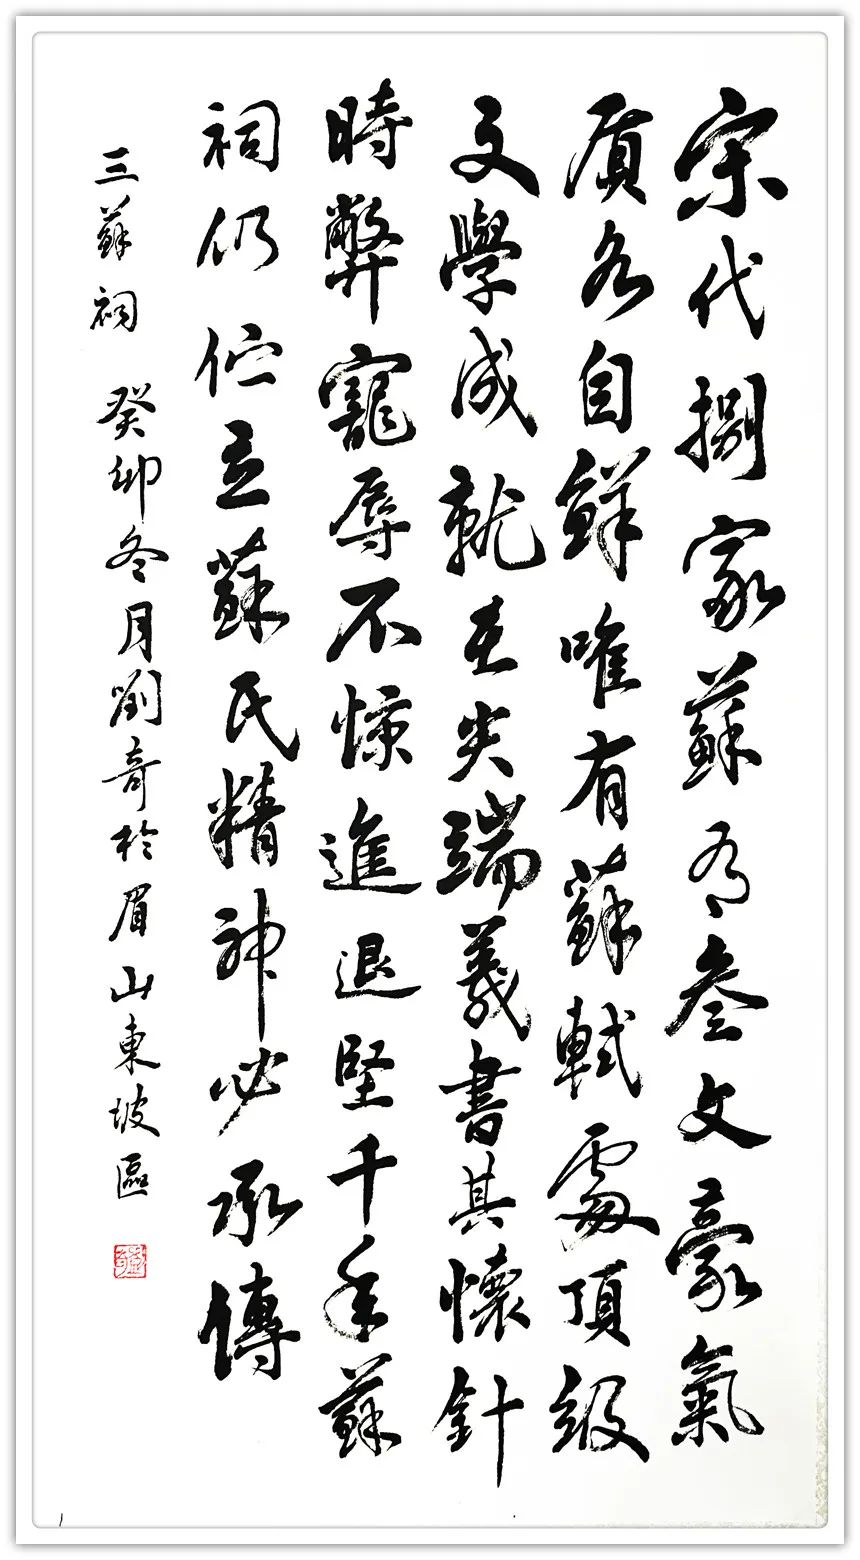 宋代捌家蘇有叁文豪氣
質各自鮮唯有蘇軾處頂級
文學成就在尖端義書其懷針
時弊寵辱不惊進退堅千年蘇
祠仍伫立蘇氏精神必承傳
三蘇祠 癸卯冬月劉奇於眉山東坡區